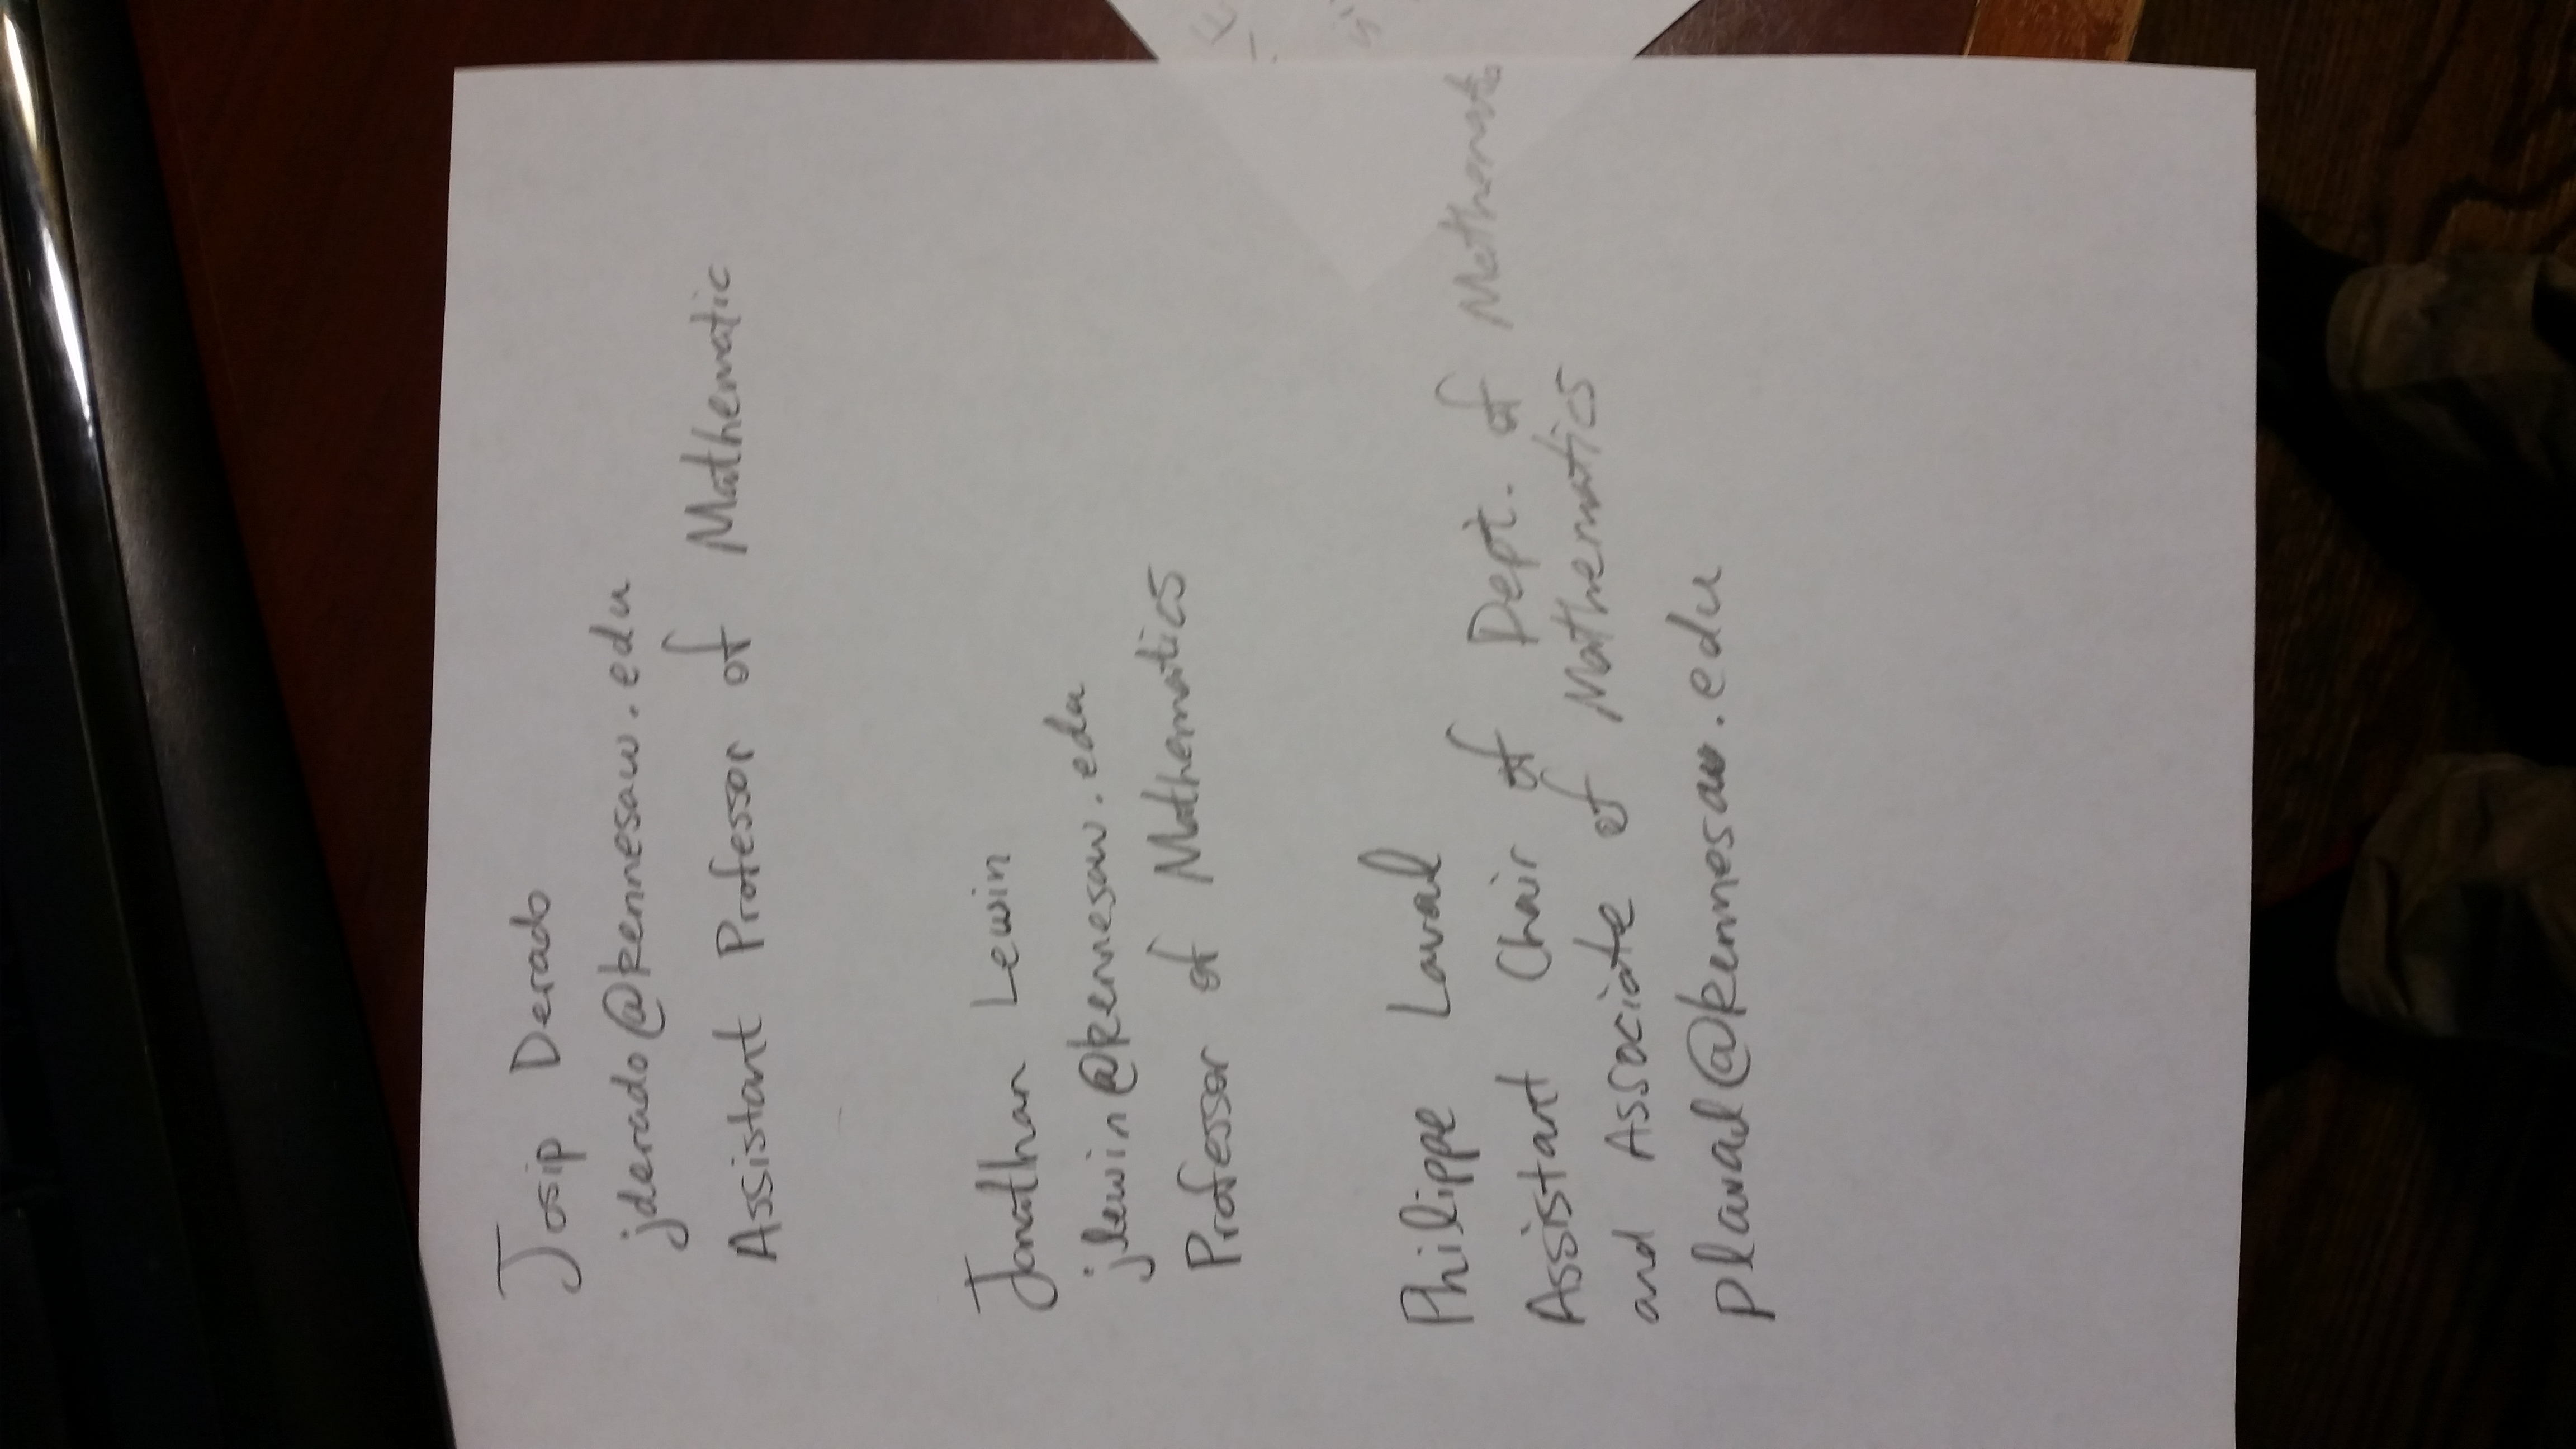 Josip Derado
jderado@kennesaw.edu
Assistant Professor of Mathematic
Jonathan Lewin
jlewin@kennesaw.edu
Professor of Mathematics
Philippe Laval
Assistant Chair of Dept. of Mathematic
and Associate of Mathematics
plaval@kennesaw.edu